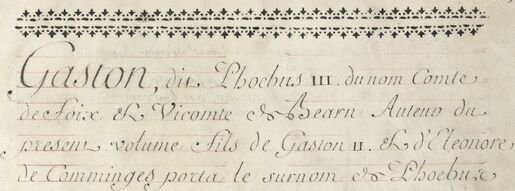 Gaston, dit Phoebus III. du nom Comte
de Foix et Vicomte de Bearn Auteur du
present volume fils de Gaston II. et d'Eleonore
de Comminges porta le surnom de Phoebus